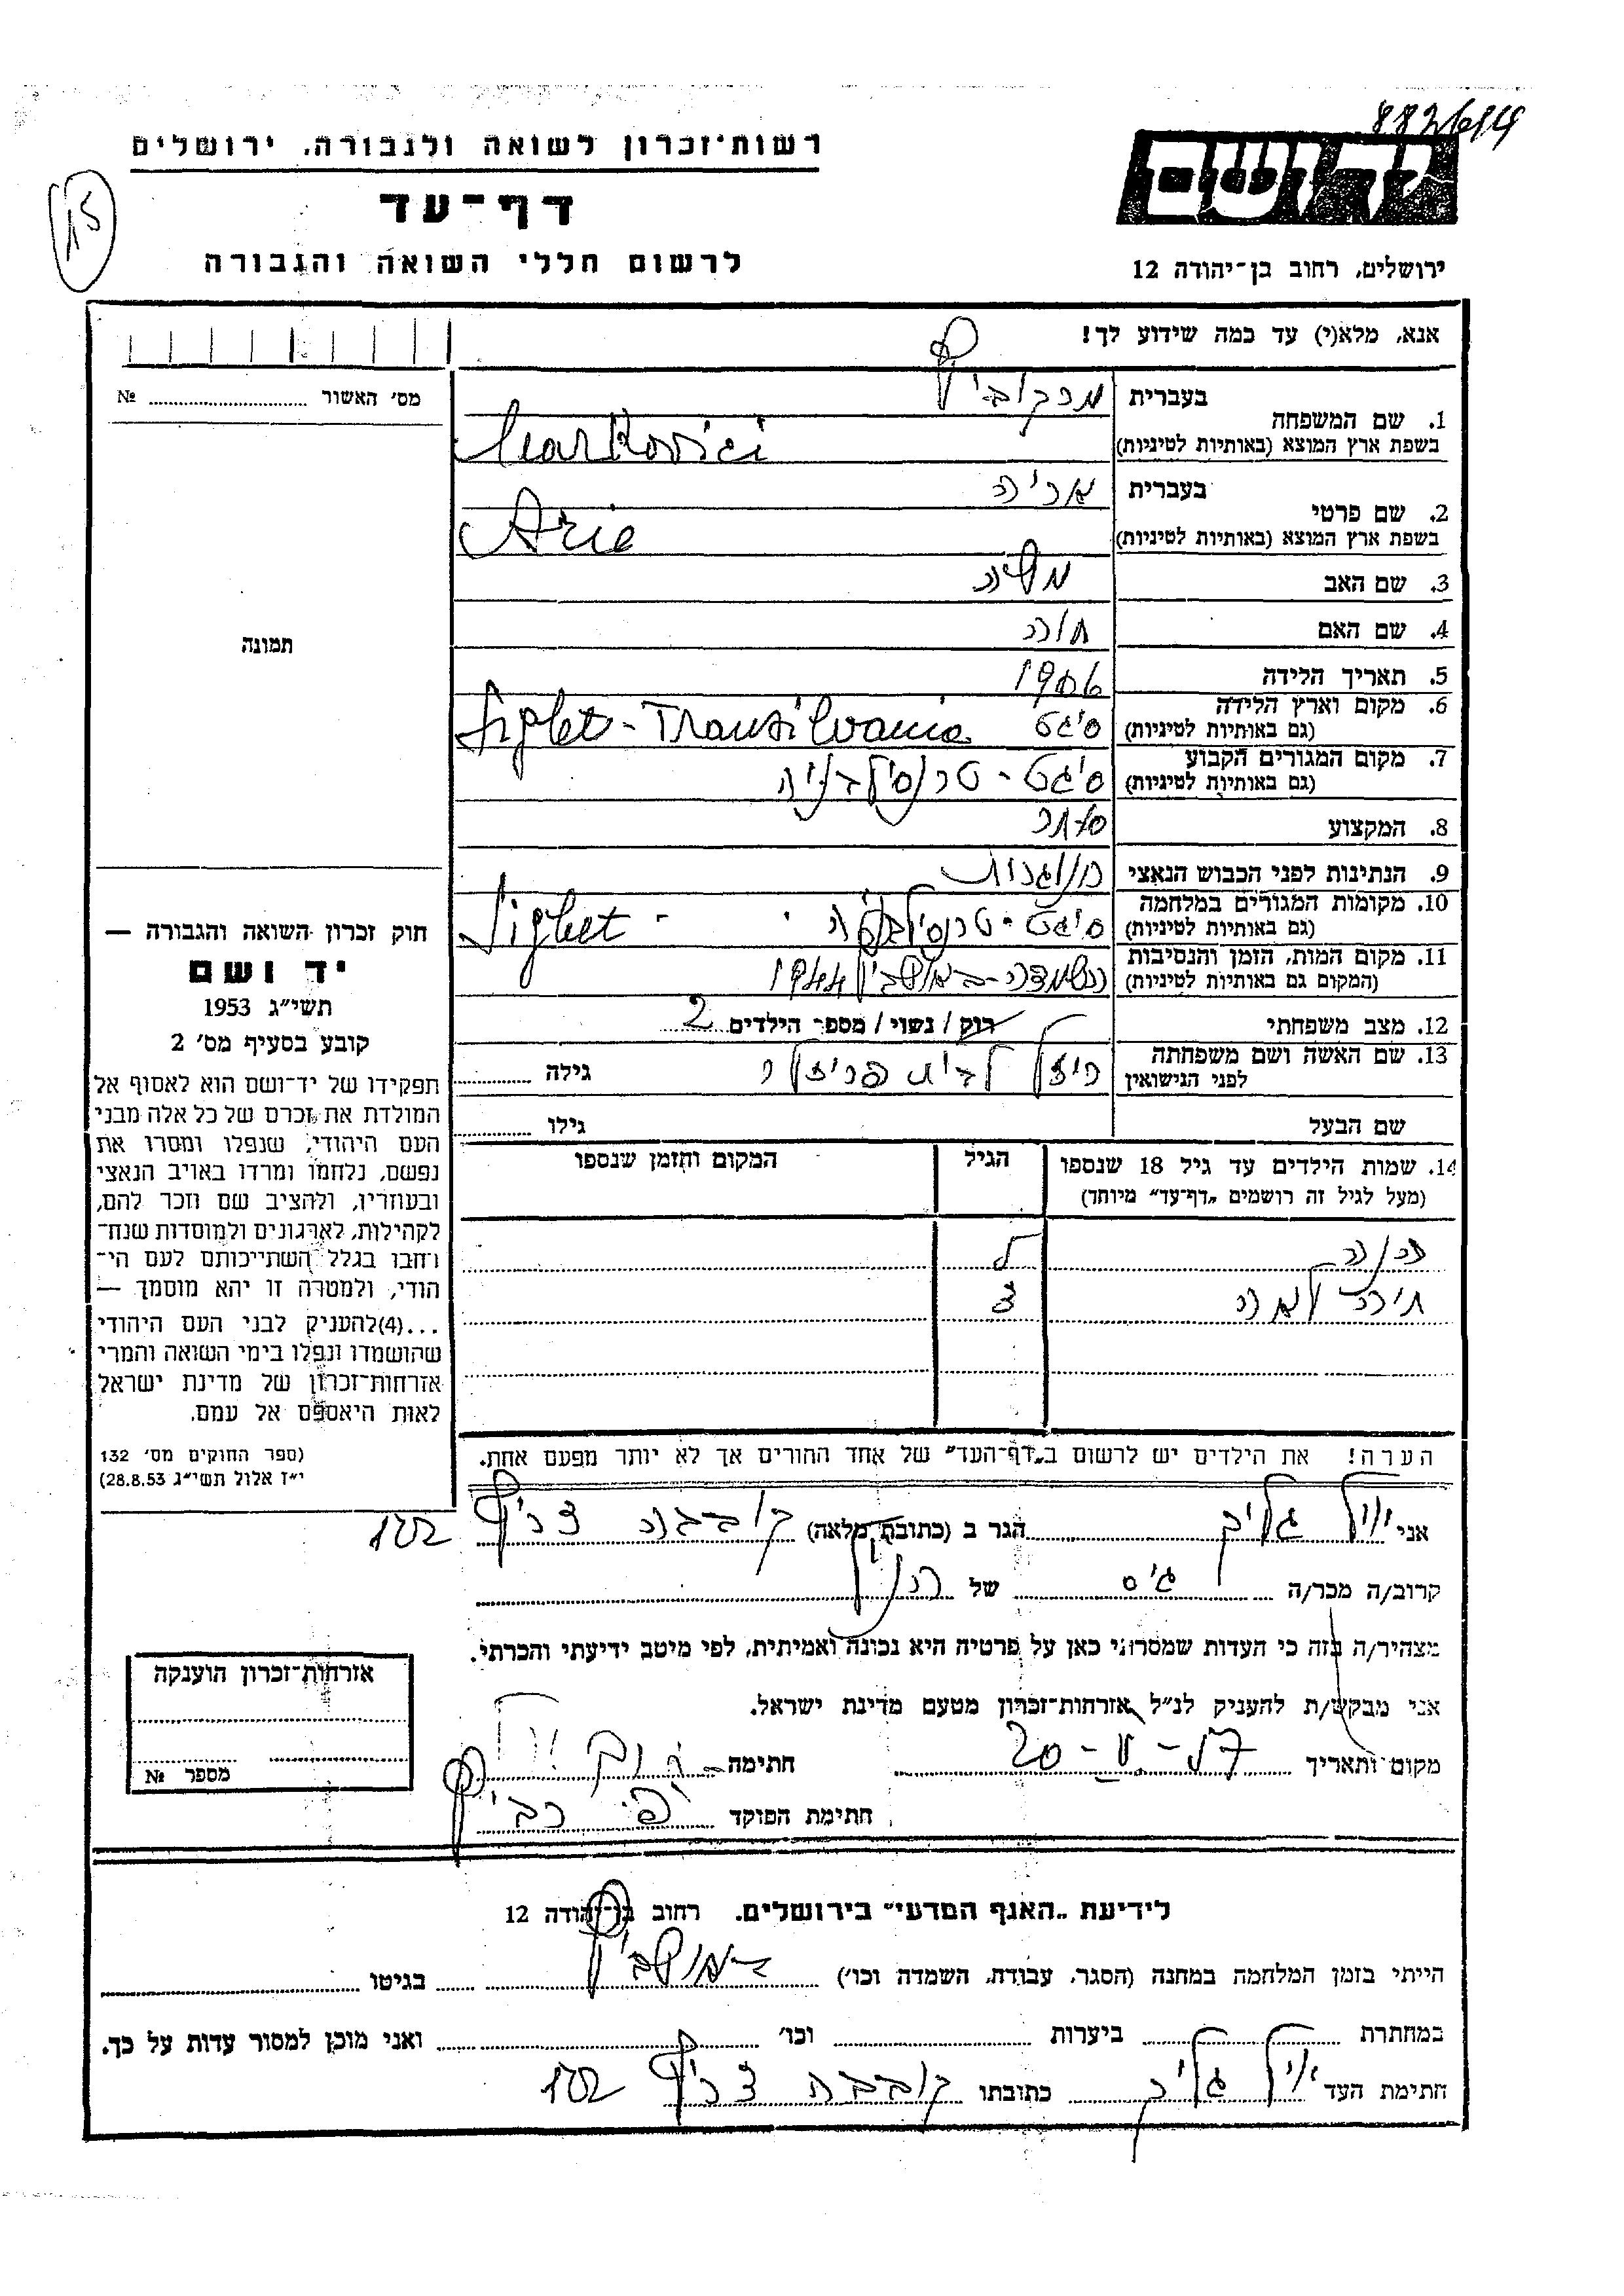 882614
רשות־זכרון לשואה ולגבורה, ירושלים
יד ושם
דף־עד
15
לרשום חללי השואה והגבורה
ירושלים, רחוב בן־יהודה 12
אנא, מלא(י) עד כמה שידוע לך!
מס׳ האשור № 
1. שם המשפחה בעברית מרקוביץ
בשפת ארץ המוצא (באותיות לטיניות) Markovici
2. שם פרטי בעברית אריה
בשפת ארץ המוצא (באותיות לטיניות) Arie
3. שם האב משה
4. שם האם חוה
5. תאריך הלידה 1906
6. מקום וארץ הלידה
(גם באותיות לטיניות) סיגט Siglet - Transilvania
7. מקום המגורים הקבוע
(גם באותיות לטיניות) סיגט - טרנסילבניה
8. המקצוע סוחר
9. הנתינות לפני הכבוש הנאצי הונגרית
10. מקומות המגורים במלחמה
(גם באותיות לטיניות) סיגט - טרנסילבניה - Siglet
11. מקום המות, הזמן והנסיבות
(המקום גם באותיות לטיניות) השמדה - באושביץ 1944
12. מצב משפחתי רוק / נשוי / מספר הילדים 2
13. שם האשה ושם משפחתה
לפני הנישואין רייזל לבית גילה
שם הבעל גילו
14. שמות הילדים עד גיל 18 שנספו הגיל המקום והזמן שנספו
(מעל לגיל זה רושמים „דף־עד״ מיוחד)
חנה
3
הערה! את הילדים יש לרשום ב„דף־העד״ של אחד ההורים אך לא יותר מפעם אחת.
תמונה
חוק זכרון השואה והגבורה —
יד ושם
תשי״ג 1953
קובע בסעיף מס׳ 2
תפקידו של יד־ושם הוא לאסוף אל
המולדת את זכרם של כל אלה מבני
העם היהודי, שנפלו ומסרו את
נפשם, נלחמו ומרדו באויב הנאצי
ובעוזריו, ולהציב שם וזכר להם,
לקהילות, לארגונים ולמוסדות שנח־
רחבו בגלל השתייכותם לעם הי־
הודי, ולמטרה זו יהא מוסמך —
...(4)להעניק לבני העם היהודי
שהושמדו ונפלו בימי השואה והמרי
אזרחות־זכרון של מדינת ישראל
לאות היאספם אל עמם.
(ספר החוקים מס׳ 132
י״ז אלול תשי״ג 28.8.53)
אני יואל גליק הגר ב (כתובת מלאה) קובבה צריף 102
קרוב/ה מכר/ה גיס של הנ״ל
מצהיר/ה בזה כי העדות שמסרתי כאן על פרטיה היא נכונה ואמיתית, לפי מיטב ידיעתי והכרתי.
אני מבקש/ת להעניק לנ״ל אזרחות־זכרון מטעם מדינת ישראל.
מקום ותאריך 20-V-57 חתימה
חתימת הפוקד
אזרחות־זכרון הוענקה
מספר №
לידיעת „האגף המדעי״ בירושלים. רחוב בן־יהודה 12
הייתי בזמן המלחמה במחנה (הסגר, עבודה, השמדה וכו׳) באושביץ בגיטו
במחתרת ביערות וכו׳ ואני מוכן למסור עדות על כך.
חתימת העד יואל גליק כתובתו קובבה צריף 102